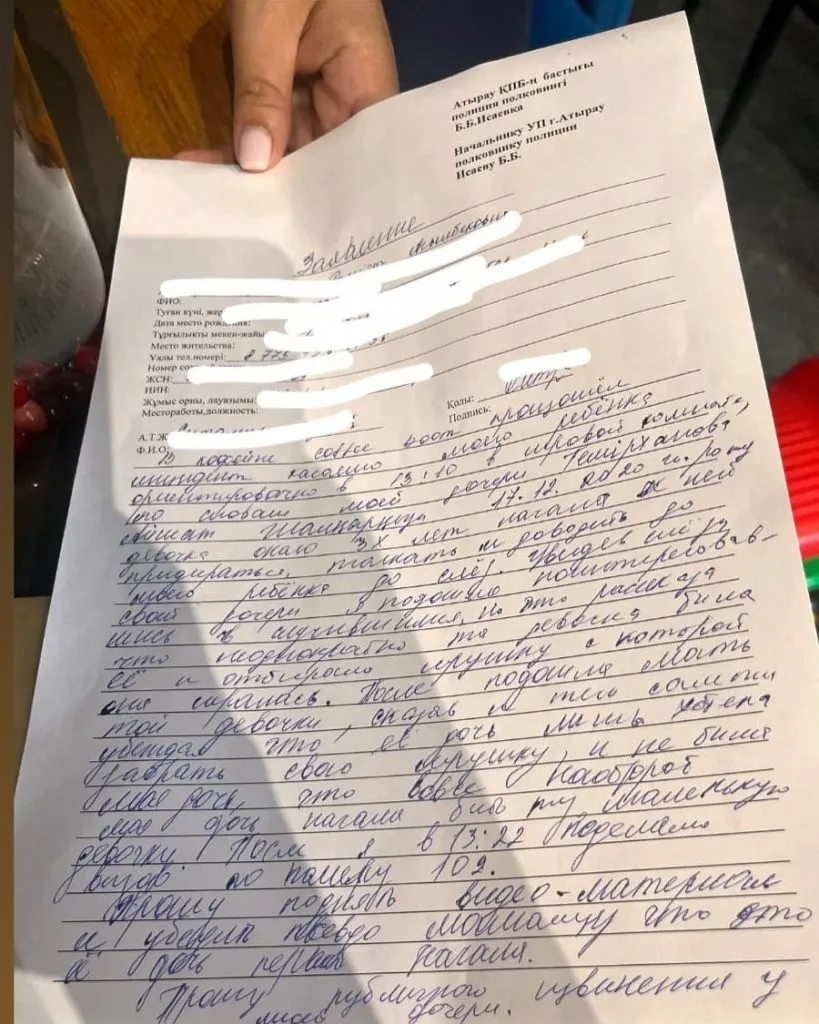 Атырау ҚПБ-ң бастығы
полиция полковнигі
Б.Б.Исаевка
Начальнику УП г.Атырау
полковнику полиции
Исаеву Б.Б.
Заявление
ФИО:
Туған күні, жер
Дата место рождения:
Тұрғылықты мекен-жайы
Место жительства:
Уялы тел.номері: 8 775
Номер со
ЖСН:
ИИН:
Жұмыс орны, лауазымы:
Место работы, должность:
Қолы:
Подпись:
А.Т.Ж
Ф.И.О
В кофейне coffee boom произошёл
инцидент касаемо моего ребёнка
ориентировочно в 13:10 в игровой комнате,
моей дочери Темірханова
17.12.2020 г. рожд
девочка около 3х лет начала к ней
придираться, толкать и доводить до
моего ребёнка до слёз. Увидев слёзы
своей дочери я подошла поинтересовав-
шись в случившимся, на что рассказа
что неоднократно та девочка била
её и отбирала игрушку с которой
она игралась. После подошла мать
той девочки, сказав и тем самым
убеждая что её дочь лишь хотела
забрать свою игрушку, и не била
мою дочь, что вовсе наоборот
моя дочь начала бить ту маленькую
девочку. После я в 13:22 поделала
вызов по номеру 102.
Прошу поднять видео-материал
и убедить псевдо мамашу что это
её дочь первая начала.
Прошу публичного извинения у
моей дочери.